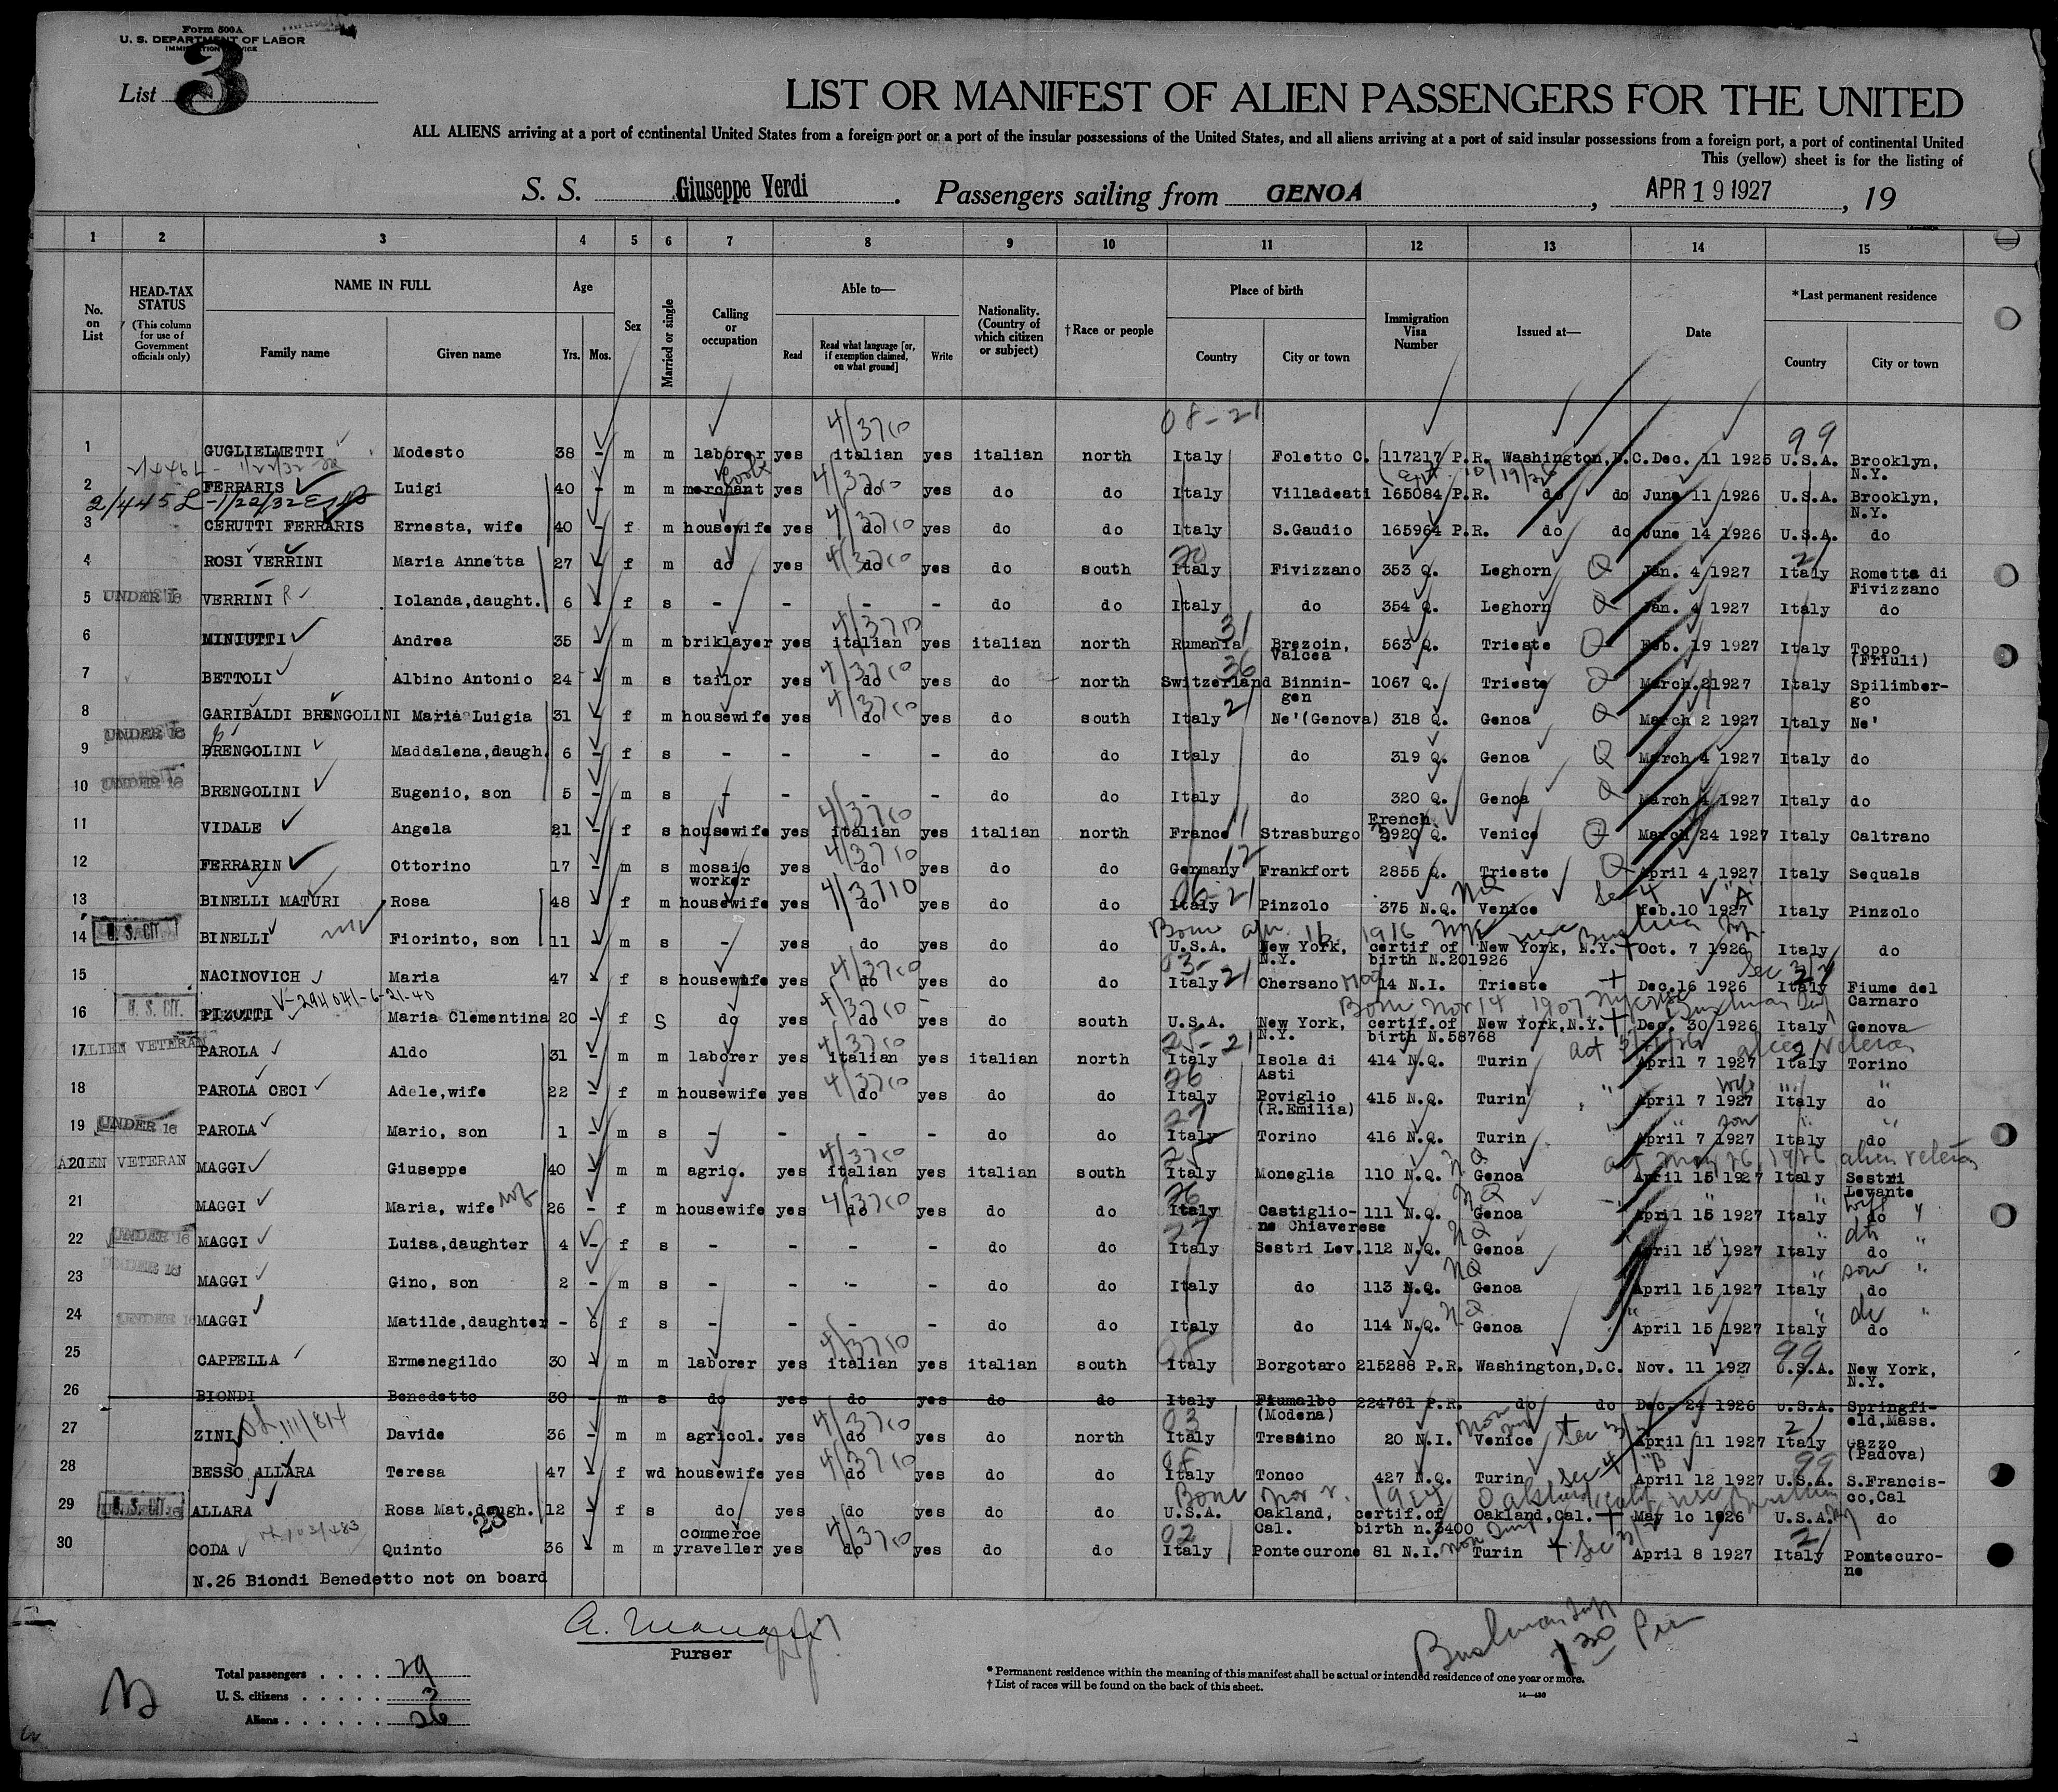 Form 500A
U. S. DEPARTMENT OF LABOR
IMMIGRATION SERVICE
List 3
LIST OR MANIFEST OF ALIEN PASSENGERS FOR THE UNITED
ALL ALIENS arriving at a port of continental United States from a foreign port or a port of the insular possessions of the United States, and all aliens arriving at a port of said insular possessions from a foreign port, a port of continental United
This (yellow) sheet is for the listing of
S. S. Giuseppe Verdi. Passengers sailing from GENOA, APR 19 1927, 19
1 2 3 4 5 6 7 8 9 10 11 12 13 14 15
No. on List
HEAD-TAX STATUS (This column for use of Government officials only)
NAME IN FULL
Family name Given name
Age
Yrs. Mos.
Sex
Married or single
Calling or occupation
Able to—
Read Read what language [or, if exemption claimed, on what ground] Write
Nationality. (Country of which citizen or subject)
†Race or people
Place of birth
Country City or town
Immigration Visa Number
Issued at—
Date
*Last permanent residence
Country City or town
1 GUGLIELMETTI Modesto 38 - m m laborer yes italian yes italian north Italy Foletto C. 117217 P.R. Washington,D.C. Dec. 11 1925 U.S.A. Brooklyn, N.Y.
2 FERRARIS Luigi 40 - m m merchant yes do yes do do Italy Villadeati 165084 P.R. do do June 11 1926 U.S.A. Brooklyn, N.Y.
3 CERUTTI FERRARIS Ernesta, wife 40 - f m housewife yes do yes do do Italy S.Gaudio 165964 P.R. do do June 14 1926 U.S.A. do
4 ROSI VERRINI Maria Annetta 27 - f m do yes do yes do south Italy Fivizzano 353 Q. Leghorn Jan. 4 1927 Italy Rometta di Fivizzano
5 UNDER 16 VERRINI Iolanda,daught. 6 - f s - - - - do do Italy do 354 Q. Leghorn Jan. 4 1927 Italy do
6 MINIUTTI Andrea 35 - m m briklayer yes italian yes italian north Rumania Brezoin, Valcea 563 Q. Trieste Feb. 19 1927 Italy Toppo (Friuli)
7 BETTOLI Albino Antonio 24 - m s tailor yes do yes do north Switzerland Binnin-gen 1067 Q. Trieste March.21927 Italy Spilimber-go
8 GARIBALDI BRENGOLINI Maria Luigia 31 - f m housewife yes do yes do south Italy Ne'(Genova) 318 Q. Genoa March 2 1927 Italy Ne'
9 UNDER 16 BRENGOLINI Maddalena,daugh. 6 - f s - - - - do do Italy do 319 Q. Genoa March 4 1927 Italy do
10 UNDER 16 BRENGOLINI Eugenio, son 5 - m s - - - - do do Italy do 320 Q. Genoa March 4 1927 Italy do
11 VIDALE Angela 21 - f s housewife yes italian yes italian north France Strasburgo French 2920 Q. Venice March 24 1927 Italy Caltrano
12 FERRARIN Ottorino 17 - m s mosaic worker yes do yes do do Germany Frankfort 2855 Q. Trieste April 4 1927 Italy Sequals
13 BINELLI MATURI Rosa 48 - f m housewife yes do yes do do Italy Pinzolo 375 N.Q. Venice feb.10 1927 Italy Pinzolo
14 U. S. CIT. BINELLI Fiorinto, son 11 - m s - yes do yes do do U.S.A. New York, N.Y. certif of birth N.201926 New York, N.Y. Oct. 7 1926 Italy do
15 NACINOVICH Maria 47 - f s housewife yes do yes do do Italy Chersano 14 N.I. Trieste Dec.16 1926 Italy Fiume del Carnaro
16 U. S. CIT. PIZOTTI Maria Clementina 20 - f S do yes do yes do south U.S.A. New York, N.Y. certif.of birth N.58768 New York,N.Y. Dec. 30 1926 Italy Genova
17 ALIEN VETERAN PAROLA Aldo 31 - m m laborer yes italian yes italian north Italy Isola di Asti 414 N.Q. Turin April 7 1927 Italy Torino
18 PAROLA CECI Adele,wife 22 - f m housewife yes do yes do do Italy Poviglio (R.Emilia) 415 N.Q. Turin April 7 1927 Italy do
19 UNDER 16 PAROLA Mario, son 1 - m s - - - - do do Italy Torino 416 N.Q. Turin April 7 1927 Italy do
20 ALIEN VETERAN MAGGI Giuseppe 40 - m m agric. yes italian yes italian south Italy Moneglia 110 N.Q. Genoa April 15 1927 Italy Sestri Levante
21 MAGGI Maria, wife 26 - f m housewife yes do yes do do Italy Castiglio-ne Chiaverese 111 N.Q. Genoa April 15 1927 Italy do
22 UNDER 16 MAGGI Luisa,daughter 4 - f s - - - - do do Italy Sestri Lev. 112 N.Q. Genoa April 15 1927 Italy do
23 UNDER 16 MAGGI Gino, son 2 - m s - - - - do do Italy do 113 N.Q. Genoa April 15 1927 Italy do
24 UNDER 16 MAGGI Matilde,daughter - 6 f s - - - - do do Italy do 114 N.Q. Genoa April 15 1927 Italy do
25 CAPPELLA Ermenegildo 30 - m m laborer yes italian yes italian south Italy Borgotaro 215288 P.R. Washington,D.C. Nov. 11 1927 U.S.A. New York, N.Y.
26 BIONDI Benedetto 30 - m s do yes do yes do do Italy Fiumalbo (Modena) 224761 P.R. do do Dec. 24 1926 U.S.A. Springfi-eld,Mass.
27 ZINI Davide 36 - m m agricol. yes do yes do north Italy Trestino 20 N.I. Venice April 11 1927 Italy Gazzo (Padova)
28 BESSO ALLARA Teresa 47 - f wd housewife yes do yes do do Italy Tonco 427 N.Q. Turin April 12 1927 U.S.A. S.Francis-co,Cal
29 U. S. CIT. ALLARA Rosa Mat.daugh. 12 - f s do yes do yes do do U.S.A. Oakland, Cal. certif.of birth n.3400 Oakland,Cal. May 10 1926 U.S.A. do
30 CODA Quinto 36 - m m commerce yraveller yes do yes do do Italy Pontecurone 81 N.I. Turin April 8 1927 Italy Pontecuro-ne
N.26 Biondi Benedetto not on board
Purser
Total passengers . . . . 29
U. S. citizens . . . . . 3
Aliens . . . . . . 26
* Permanent residence within the meaning of this manifest shall be actual or intended residence of one year or more.
† List of races will be found on the back of this sheet.
14—430